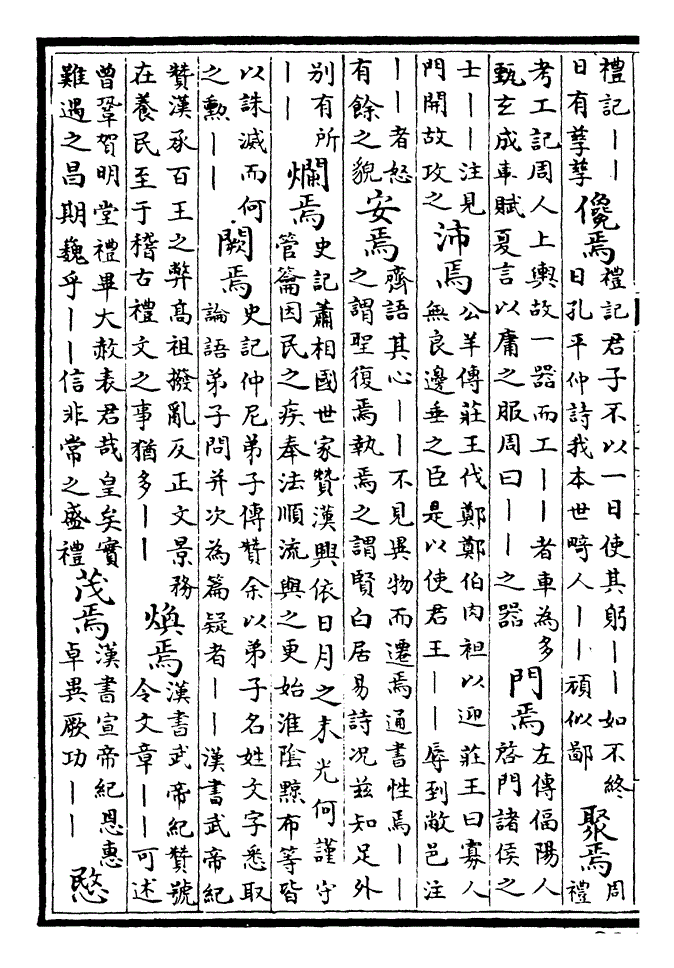 禮記丨丨
日有孳孳
儳焉
禮記君子不以一日使其躬丨丨如不終
日孔平仲詩我本世畸人丨丨頑似鄙
聚焉
周
禮
考工記周人上輿故一器而工丨丨者車為多
甄玄成車賦夏言以庸之服周曰丨丨之器
門焉
左傳偪陽人
啓門諸侯之
士丨丨注見
門開故攻之
沛焉
公羊傳莊王伐鄭鄭伯肉袒以迎莊王曰寡人
無良邊垂之臣是以使君王丨丨辱到敝邑注
丨丨者怒
有餘之貌
安焉
齊語其心丨丨不見異物而遷焉通書性焉丨丨
之謂聖復焉執焉之謂賢白居易詩况兹知足外
別有所
丨丨
爛焉
史記蕭相國世家贊漢興依日月之末光何謹守
管籥因民之疾奉法順流與之更始淮陰黥布等皆
以誅滅而何
之勲丨丨
闕焉
史記仲尼弟子傳贊余以弟子名姓文字悉取
論語弟子問并次為篇疑者丨丨漢書武帝紀
贊漢承百王之弊高祖撥亂反正文景務
在養民至于稽古禮文之事猶多丨丨
煥焉
漢書武帝紀贊號
令文章丨丨可述
曾鞏賀明堂禮畢大赦表君哉皇矣實
難遇之昌期魏乎丨丨信非常之盛禮
茂焉
漢書宣帝紀恩惠
卓異厥功丨丨
愍